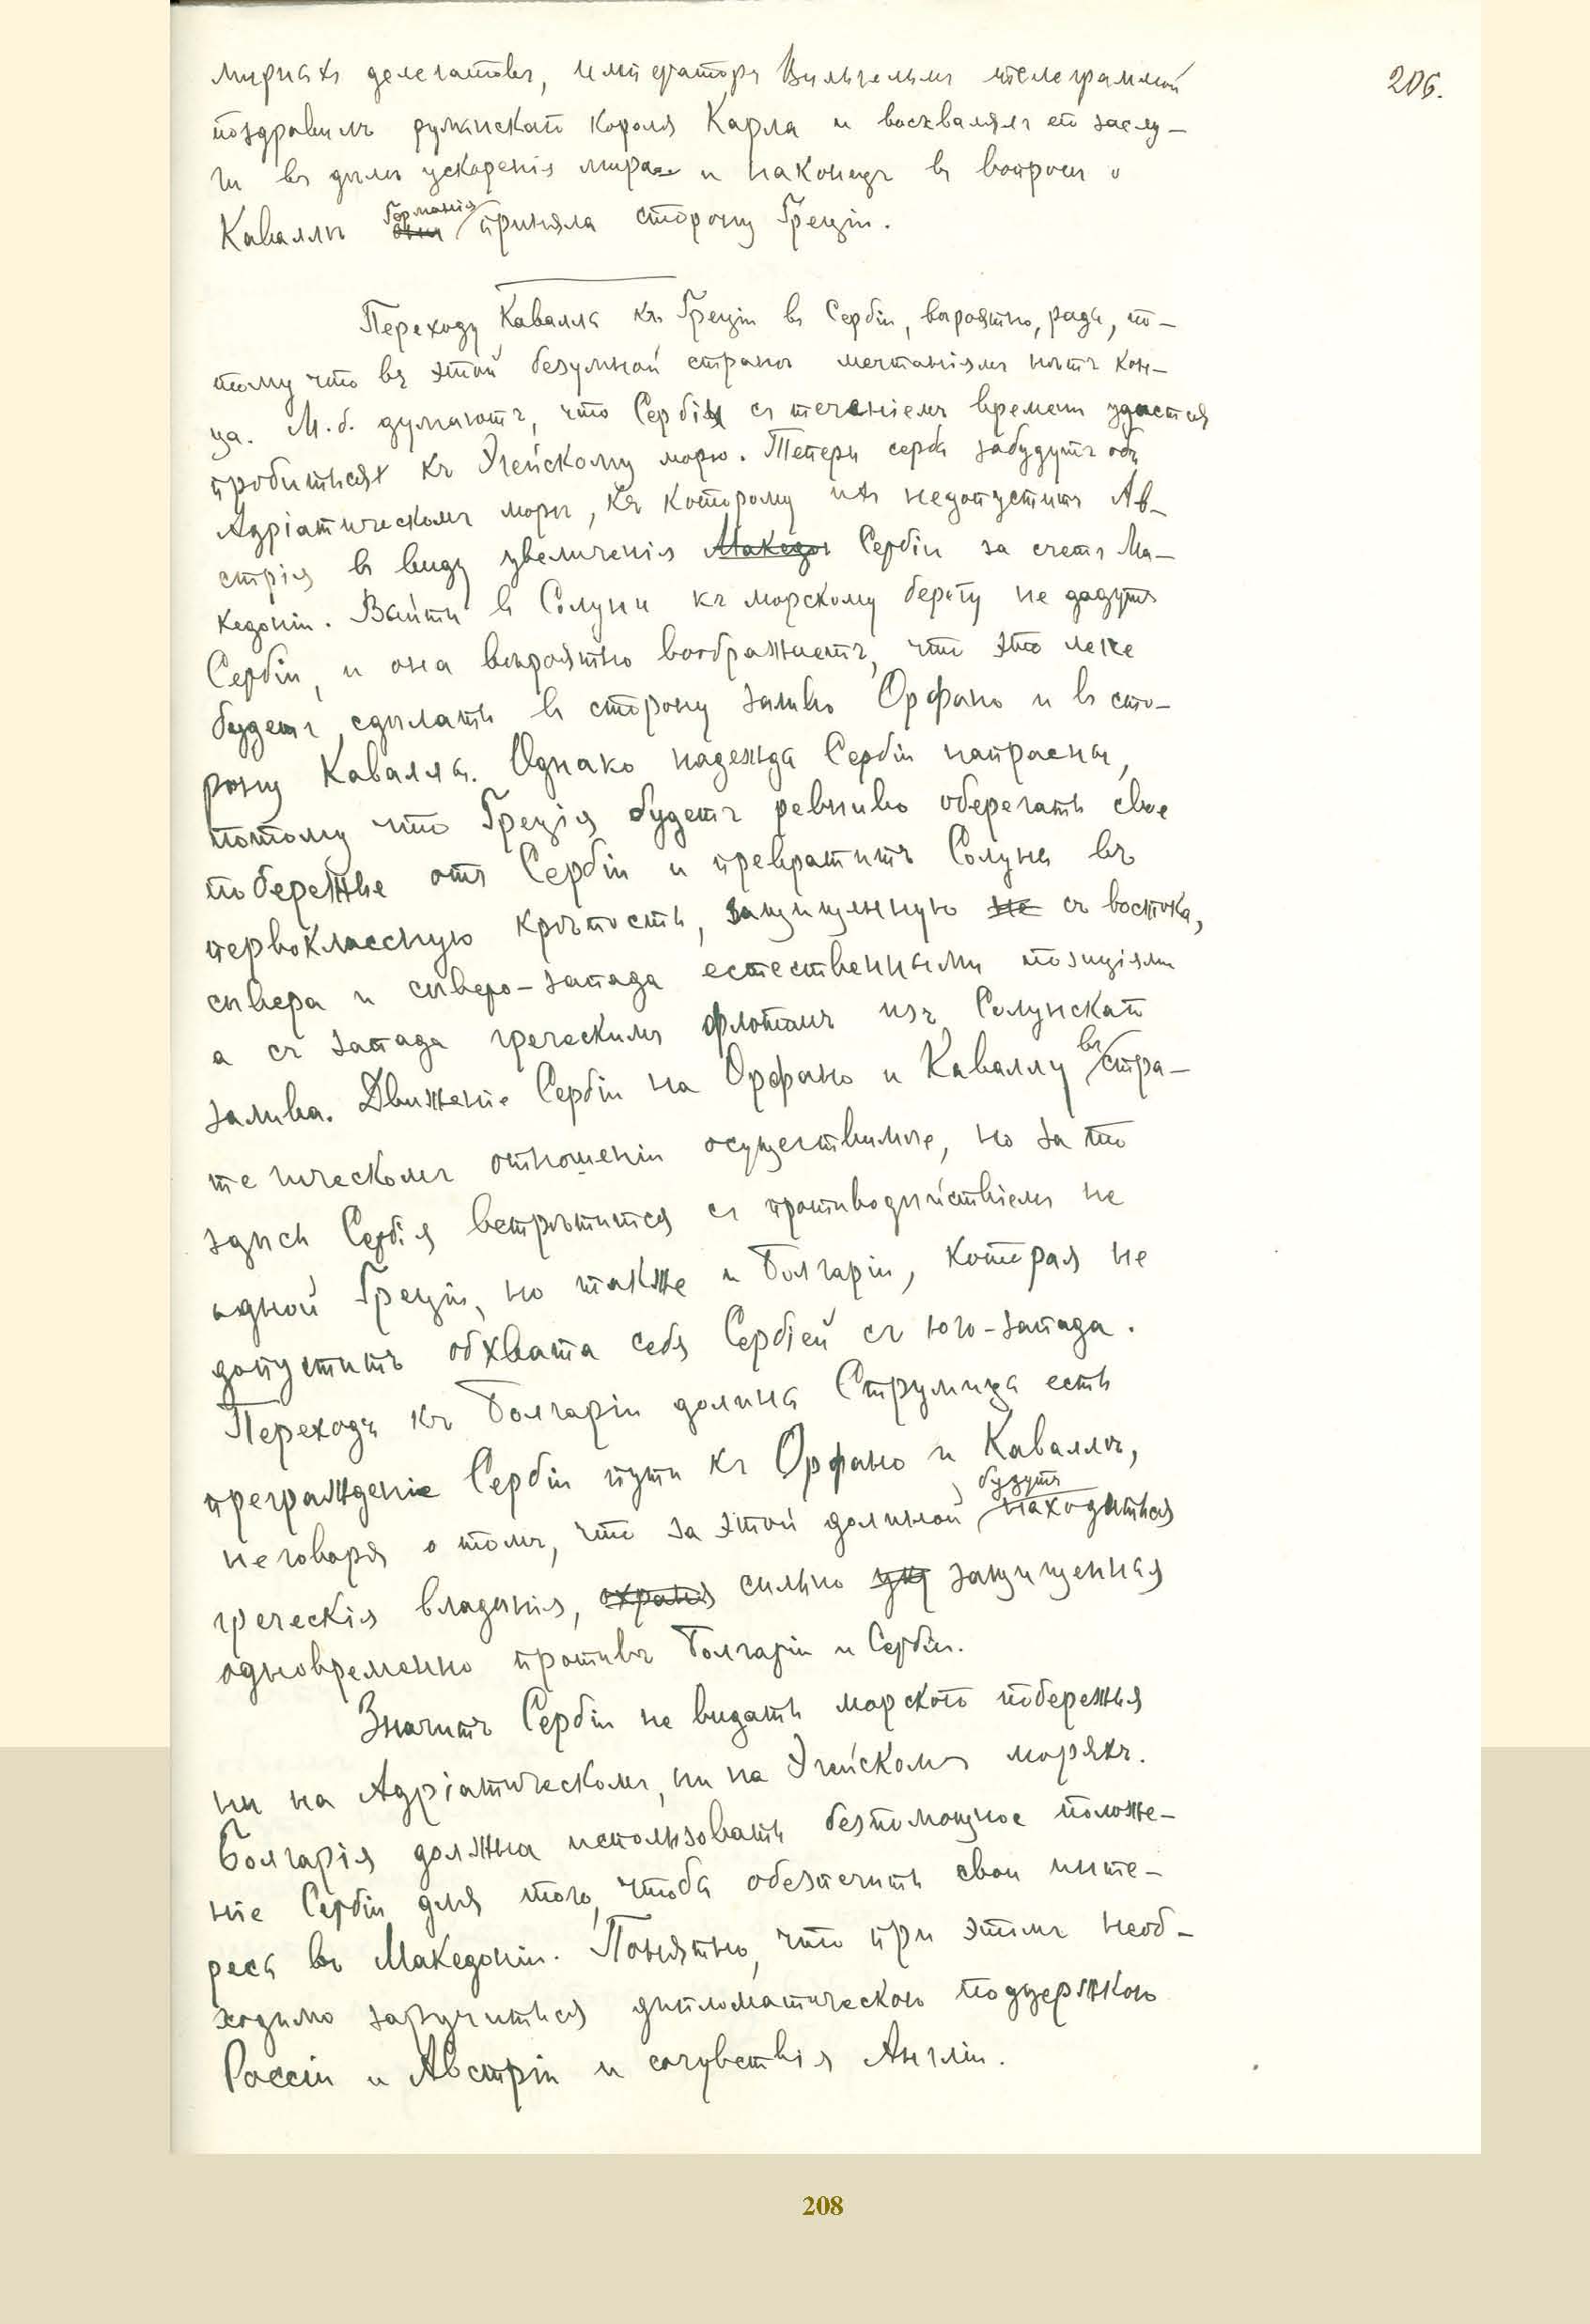 206.
мирныхъ делегатовъ, императоръ Вильгельмъ телеграммой
поздравилъ румынскаго короля Карла и восхвалялъ его заслу-
ги въ дѣлѣ ускоренія мира и наконецъ въ вопросѣ о
Каваллѣ Германія приняла сторону Греціи.
Переходу Каваллы къ Греціи въ Сербіи, вѣроятно, рады, по-
тому что въ этой безумной странѣ мечтаніямъ нѣтъ кон-
ца. М.б. думаютъ, что Сербіи съ теченіемъ времени удастся
пробиться къ Эгейскому морю. Теперь сербы забудутъ объ
Адріатическомъ морѣ, къ которому ихъ недопуститъ Ав-
стрія въ виду увеличенія Македоніи Сербіи за счетъ Ма-
кедоніи. Выйти въ Солуни къ морскому берегу не дадутъ
Сербіи, и она вѣроятно воображаетъ, что это легче
будетъ сдѣлать въ сторону залива Орфано и въ сто-
рону Каваллы. Однако надежды Сербіи напрасны,
потому что Греція будетъ ревниво оберегать свое
побережье отъ Сербіи и превратитъ Солунь въ
первоклассную крѣпость, защищенную не съ востока,
сѣвера и сѣверо-запада естественными позиціями
а съ запада греческимъ флотомъ изъ Солунскаго
залива. Движеніе Сербіи на Орфано и Каваллу въ стра-
тегическомъ отношеніи осуществимое, но за то
здѣсь Сербія встрѣтится съ противодѣйствіемъ не
одной Греціи, но также и Болгаріи, которая не
допуститъ обхвата себя Сербіей съ юго-запада.
Переходъ къ Болгаріи долины Струмицы есть
прегражденіе Сербіи пути къ Орфано и Каваллѣ,
неговоря о томъ, что за этой долиной будутъ находиться
греческія владѣнія, сильно защищенныя
одновременно противъ Болгаріи и Сербіи.
Значитъ Сербіи не видать морского побережья
ни на Адріатическомъ, ни на Эгейскомъ моряхъ.
Болгарія должна использовать безпомощное положе-
ніе Сербіи для того, чтобы обезпечить свои инте-
ресы въ Македоніи. Понятно, что при этомъ необ-
ходимо заручиться дипломатическою поддержкою
Россіи и Австріи и сочувствія Англіи.
208